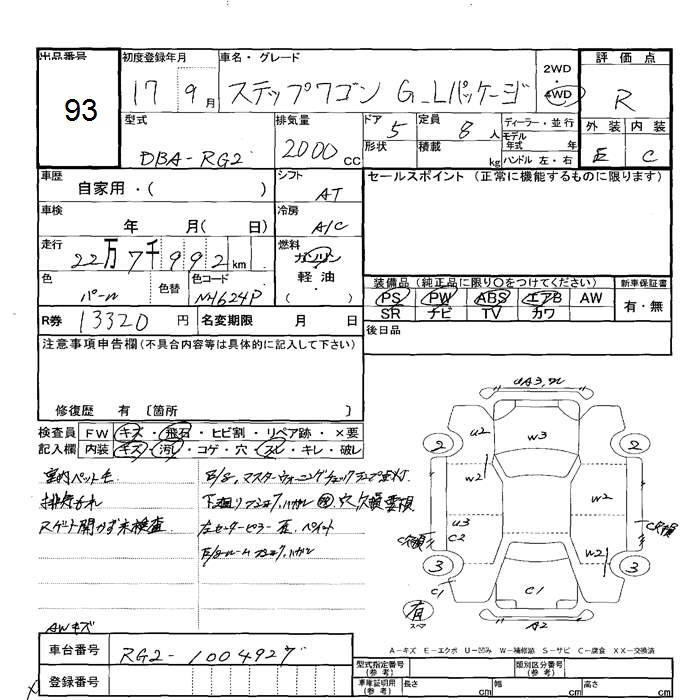 出品番号
93
初度登録年月
17年9月
車名・グレード
ステップワゴン G_Lパッケージ
2WD
4WD
評価点
R
外装 内装
E C
型式
DBA-RG2
排気量
2000cc
ドア 5
形状
定員 8人
積載 kg
ディーラー・並行
モデル年式 年
ハンドル 左・右
車歴
自家用・( )
シフト
AT
セールスポイント (正常に機能するものに限ります)
車検
年 月( 日)
冷房
A/C
走行
22万7千992km
燃料
ガソリン
軽油
( )
色
パール
色替
色コード
NH624P
装備品(純正品に限り○をつけてください)
PS PW ABS エアB AW
SR ナビ TV カワ
新車保証書
有・無
R券 13320円
名変期限 月 日
後日品
注意事項申告欄(不具合内容等は具体的に記入して下さい)
修復歴 有 〔箇所 〕
検査員記入欄
FW キズ・飛石・ヒビ割・リペア跡・×要
内装 キズ・汚レ・コゲ・穴・スレ・キレ・破レ
室内ペット毛
排気もれ
スゲート開かず未検査
AWキズ
E/g,マスターウォーニングチェックランプ点灯
下廻り
穴 欠損 要現
左センターピラー 歪、ペイント
A3
U2
W3
2
2
W2
W2
U3
C2
C欠損
C欠損
W2
3
3
C1
C1
A2
有
スペア
A-キズ E-エクボ U-凹み W-補修跡 S-サビ C-腐食 XX-交換済
車台番号
RG2-1004927
登録番号
型式指定番号
(参考)
類別区分番号
(参考)
車庫証明用
(参考)
長さ cm
幅 cm
高さ cm